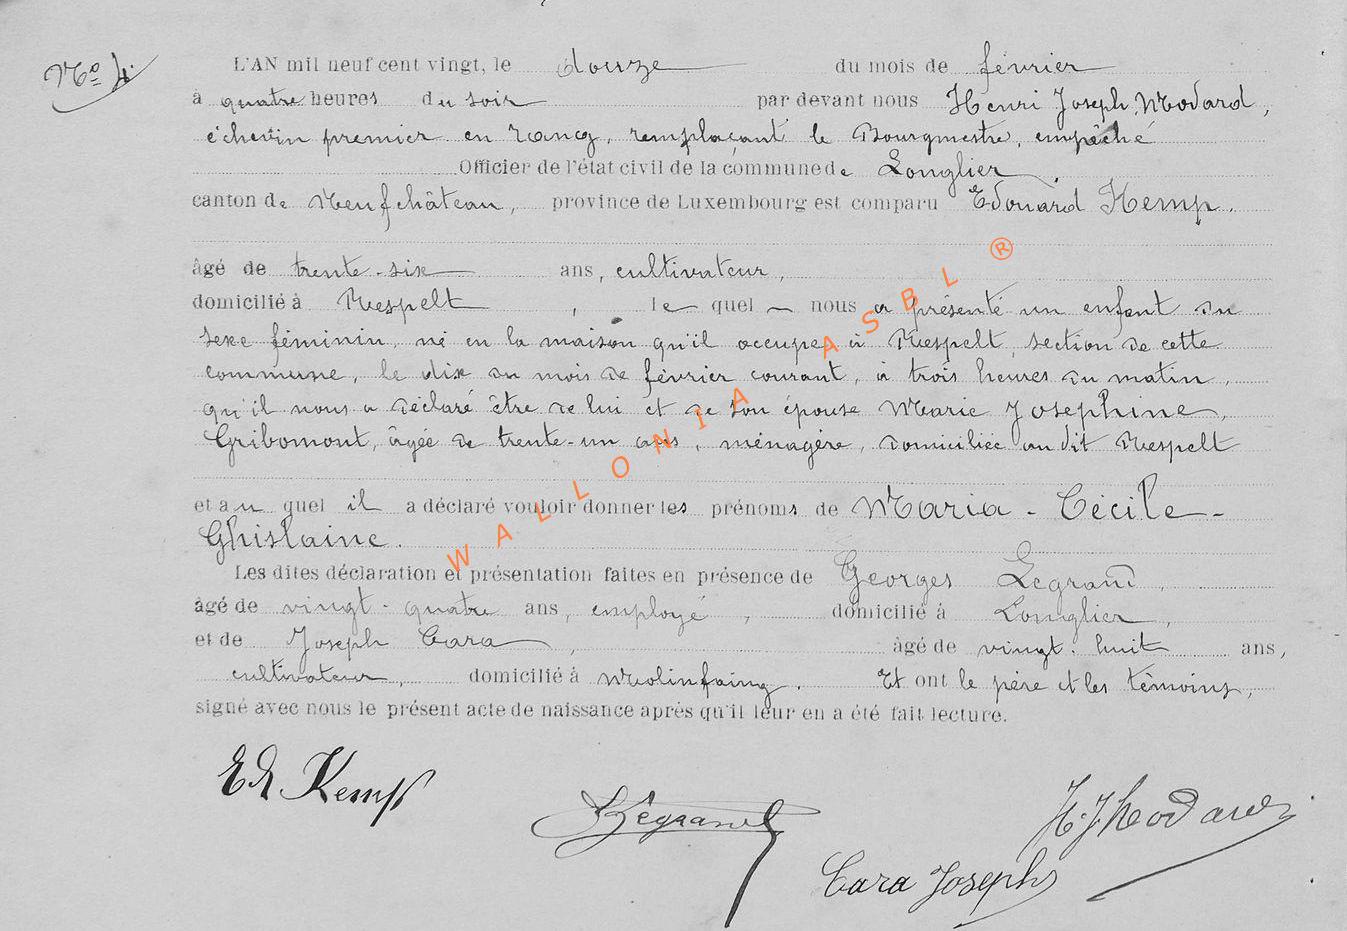 No 4.
L'AN mil neuf cent vingt, le douze du mois de février
à quatre heures du soir par devant nous Henri Joseph Modard,
échevin premier en rang, remplaçant le Bourgmestre, empêché
Officier de l'état civil de la commune de Longlier,
canton de Neufchâteau, province de Luxembourg est comparu Edouard Kemp.
âgé de trente-six ans, cultivateur,
domicilié à Respelt, le quel nous a présenté un enfant du
sexe féminin, né en la maison qu'il occupe à Respelt, section de cette
commune, le dix du mois de février courant, à trois heures du matin,
qu'il nous a déclaré être de lui et de son épouse Marie Josephine,
Gribomont, âgée de trente-un ans, ménagère, domiciliée au dit Respelt
et au quel il a déclaré vouloir donner les prénoms de Maria - Cécile -
Ghislaine.
Les dites déclaration et présentation faites en présence de Georges Legrand,
âgé de vingt-quatre ans, employé, domicilié à Longlier,
et de Joseph Cara, âgé de vingt-huit ans,
cultivateur, domicilié à Molinfaing. Et ont le père et les témoins,
signé avec nous le présent acte de naissance après qu'il leur en a été fait lecture.
Ed Kemp
Legrand
H. J. Modard
Cara Joseph
WALLONIA ASBL ®